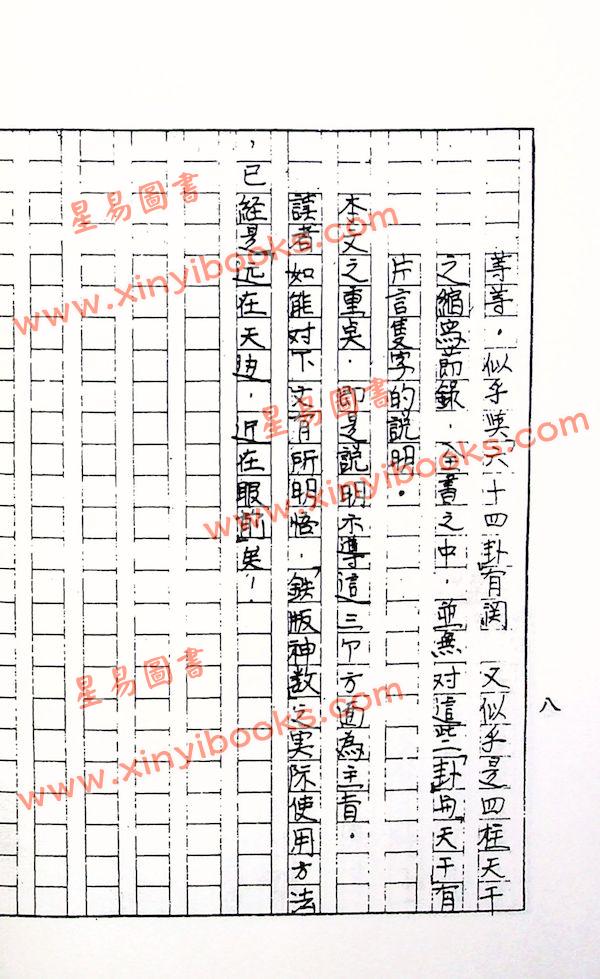 等等，似乎與六十四卦有関 又似乎是四柱天干
之縮寫節錄，全書之中，並無对這些「卦冊」天干有
片言隻字的說明。
本文之重臭，即是說明示導這三个方面為主旨。
讀者如能对下文有所明悟，「鉄版神数」实际使用方法
，已経是「远在天边，近在眼前」矣！
八
星易圖書
www.xinyibooks.com
星易圖書
www.xinyibooks.com
星易圖書
www.xinyibooks.com